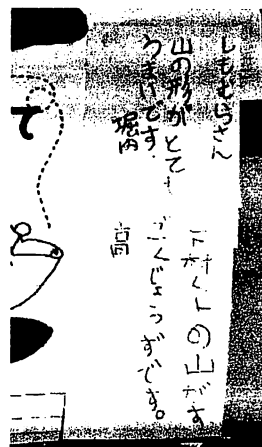 しもむらさん
山の形がとても
うまいです。
堀内
下村くんの山がす
ごくじょうずです。
高
て